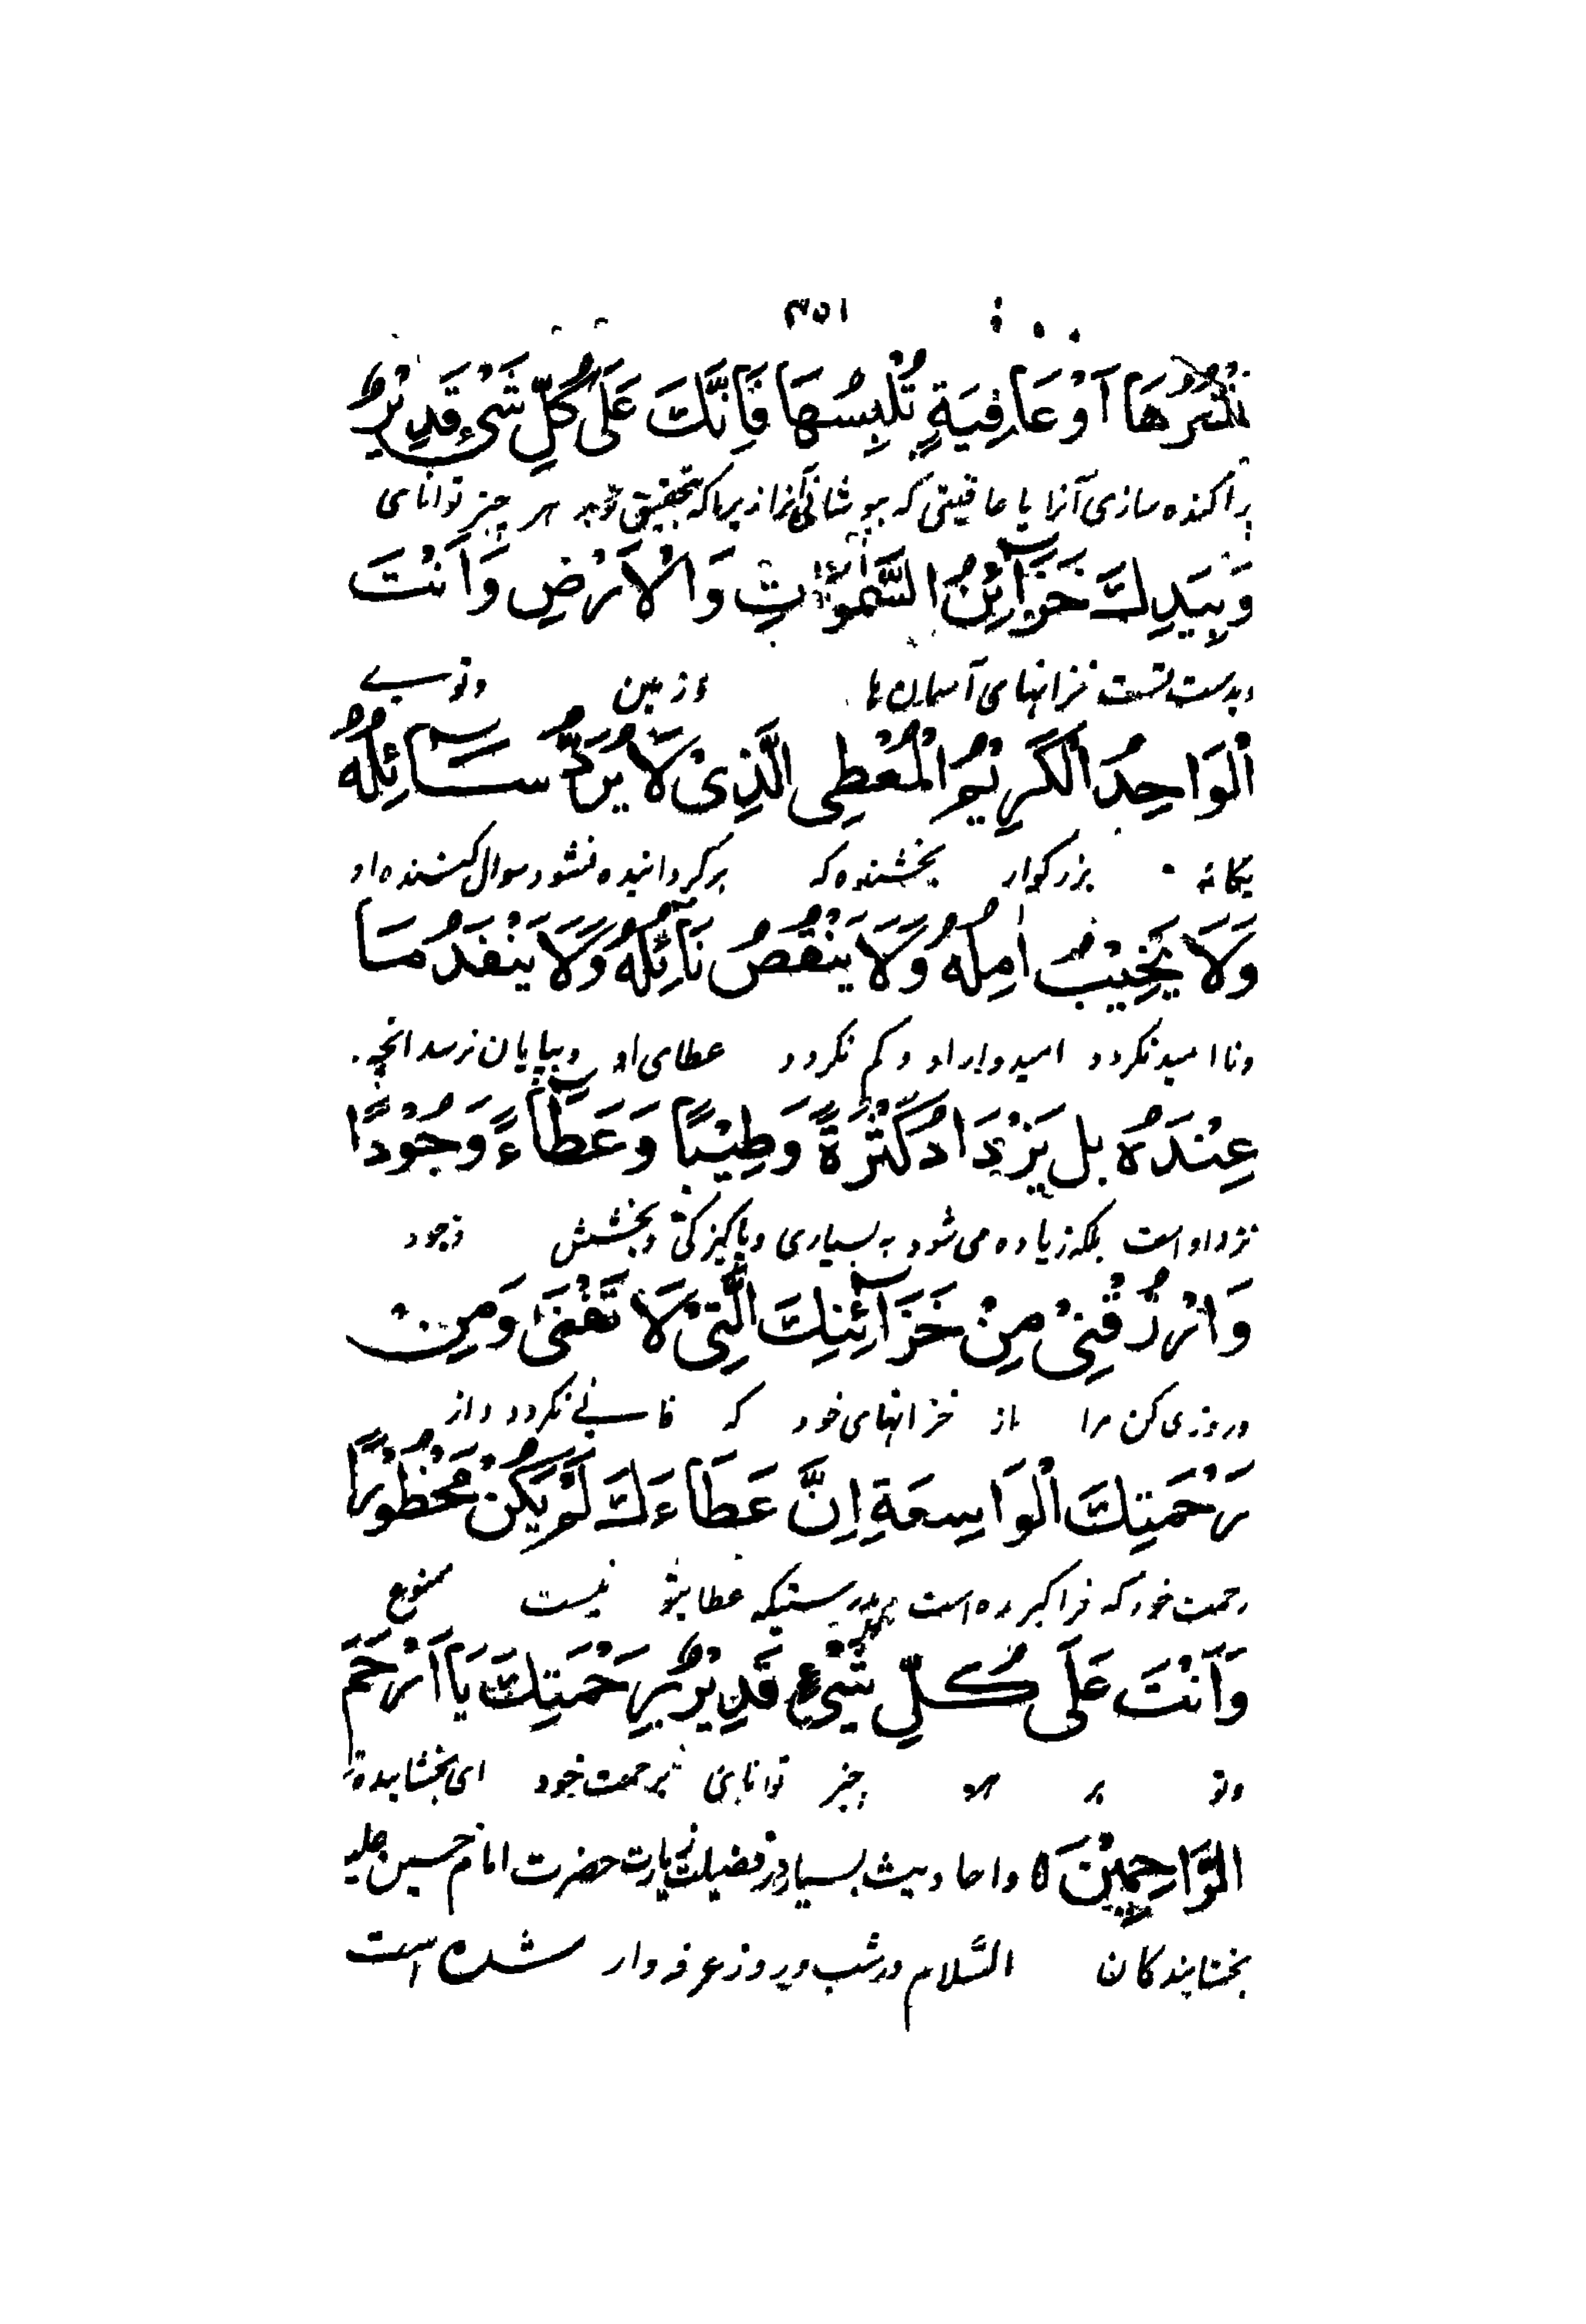 ۳۵۱
تَنْشُرُهَا اَوْ عَافِيَةٍ تُلْبِسُهَا فَاِنَّكَ عَلٰى كُلِّ شَىْءٍ قَدِيْرٌ
پراکنده سازی آنرا یا عافیتی که بپوشانی آنرا زیراکه بتحقیق تو بر هر چیز توانای
وَبِيَدِكَ خَزَآئِنُ السَّمٰوَاتِ وَالْاَرْضِ وَاَنْتَ
وبدست تست خزانهای آسمان ها وزمین وتوئی
الْوَاحِدُ الْكَرِيْمُ الْمُعْطِى الَّذِىْ لَا يُرَدُّ سَآئِلُهُ
یگانه بزرگوار بخشنده که برگردانیده نشود سوال کننده او
وَلَا يَخِيْبُ اٰمِلُهُ وَلَا يَنْقُصُ نَآئِلُهُ وَلَا يَنْفَدُ مَا
ونا امید نگردد امیدوار او وکم نگردد عطای او وبپایان نرسد انچه
عِنْدَهُ بل يَزْدَادُ كَثْرَةً وَطِيْبًا وَعَطَآءً وَجُوْدًا
نزد او است بلکه زیاده می شود به بسیاری وپاکیزگی وبخشش وجود
وَارْزُقْنِىْ مِنْ خَزَآئِنِكَ الَّتِىْ لَا تَفْنٰى وَمِنْ
وروزی کن مرا از خزانهای خود که فانی نگردد واز
رَحْمَتِكَ الْوَاسِعَةِ اِنَّ عَطَاءَكَ لَمْ يَكُنْ مَحْظُوْرًا
رحمت خود که فراگیرده است بدرستیکه عطا تو نیست ممنوع
وَاَنْتَ عَلٰى كُلِّ شَىْءٍ قَدِيْرٌ بِرَحْمَتِكَ يَا اَرْحَمَ
وتو بر هر چیز توانای برحمت خود ای بخشاینده‌تر
الرَّاحِمِيْنَ ه واحادیث بسیار در فضیلت زیارت حضرت امام حسین علیه
بخشایندگان السَّلام در شب وروز عرفه وارد شده است